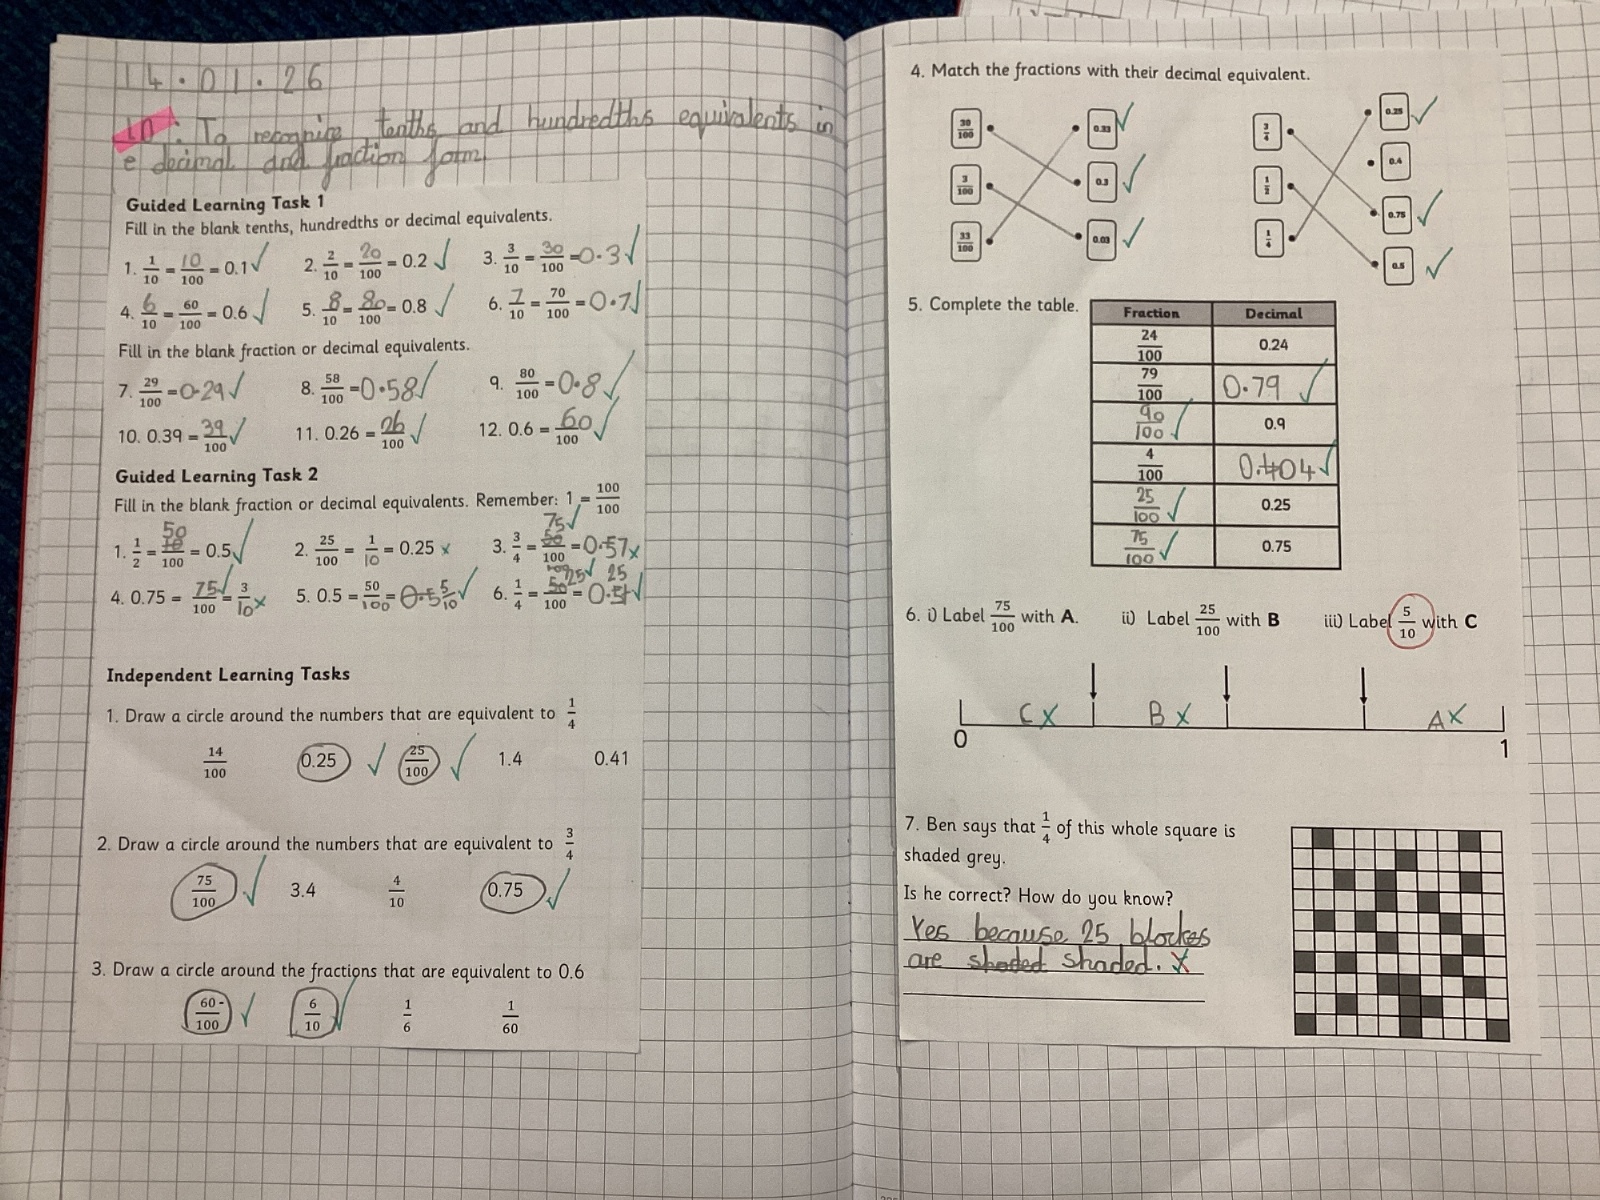 14.01.26
LO: To recognise tenths and hundredths equivalents in
e decimal and fraction form.
Guided Learning Task 1
Fill in the blank tenths, hundredths or decimal equivalents.
1. 1/10 = 10/100 = 0.1 ✓ 2. 2/10 = 20/100 = 0.2 ✓ 3. 3/10 = 30/100 = 0.3 ✓
4. 6/10 = 60/100 = 0.6 ✓ 5. 8/10 = 80/100 = 0.8 ✓ 6. 7/10 = 70/100 = 0.7 ✓
Fill in the blank fraction or decimal equivalents.
7. 29/100 = 0.29 ✓ 8. 58/100 = 0.58 ✓ 9. 80/100 = 0.8 ✓
10. 0.39 = 39/100 ✓ 11. 0.26 = 26/100 ✓ 12. 0.6 = 60/100 ✓
Guided Learning Task 2
Fill in the blank fraction or decimal equivalents. Remember: 1 = 100/100
1. 1/2 = 50/100 = 0.5 ✓ 2. 25/100 = 1/10 = 0.25 x 3. 3/4 = 75/100 ✓ = 0.57 x
4. 0.75 = 75/100 ✓ = 3/10 x 5. 0.5 = 50/100 = 5/10 ✓ 6. 1/4 = 25/100 ✓ = 0.25 ✓
Independent Learning Tasks
1. Draw a circle around the numbers that are equivalent to 1/4
14/100 0.25 ✓ 25/100 ✓ 1.4 0.41
2. Draw a circle around the numbers that are equivalent to 3/4
75/100 ✓ 3.4 4/10 0.75 ✓
3. Draw a circle around the fractions that are equivalent to 0.6
60/100 ✓ 6/10 ✓ 1/6 1/60
4. Match the fractions with their decimal equivalent.
30/100 0.33 ✓ 3/4 0.25 ✓
0.4
3/100 0.3 ✓ 1/2 0.75 ✓
33/100 0.03 ✓ 1/4 0.5 ✓
5. Complete the table.
Fraction Decimal
24/100 0.24
79/100 0.79 ✓
90/100 ✓ 0.9
4/100 0.04 ✓
25/100 ✓ 0.25
75/100 ✓ 0.75
6. i) Label 75/100 with A. ii) Label 25/100 with B iii) Label 5/10 with C
C x B x A x
0 1
7. Ben says that 1/4 of this whole square is
shaded grey.
Is he correct? How do you know?
Yes because 25 blockes
are shaded shaded. x